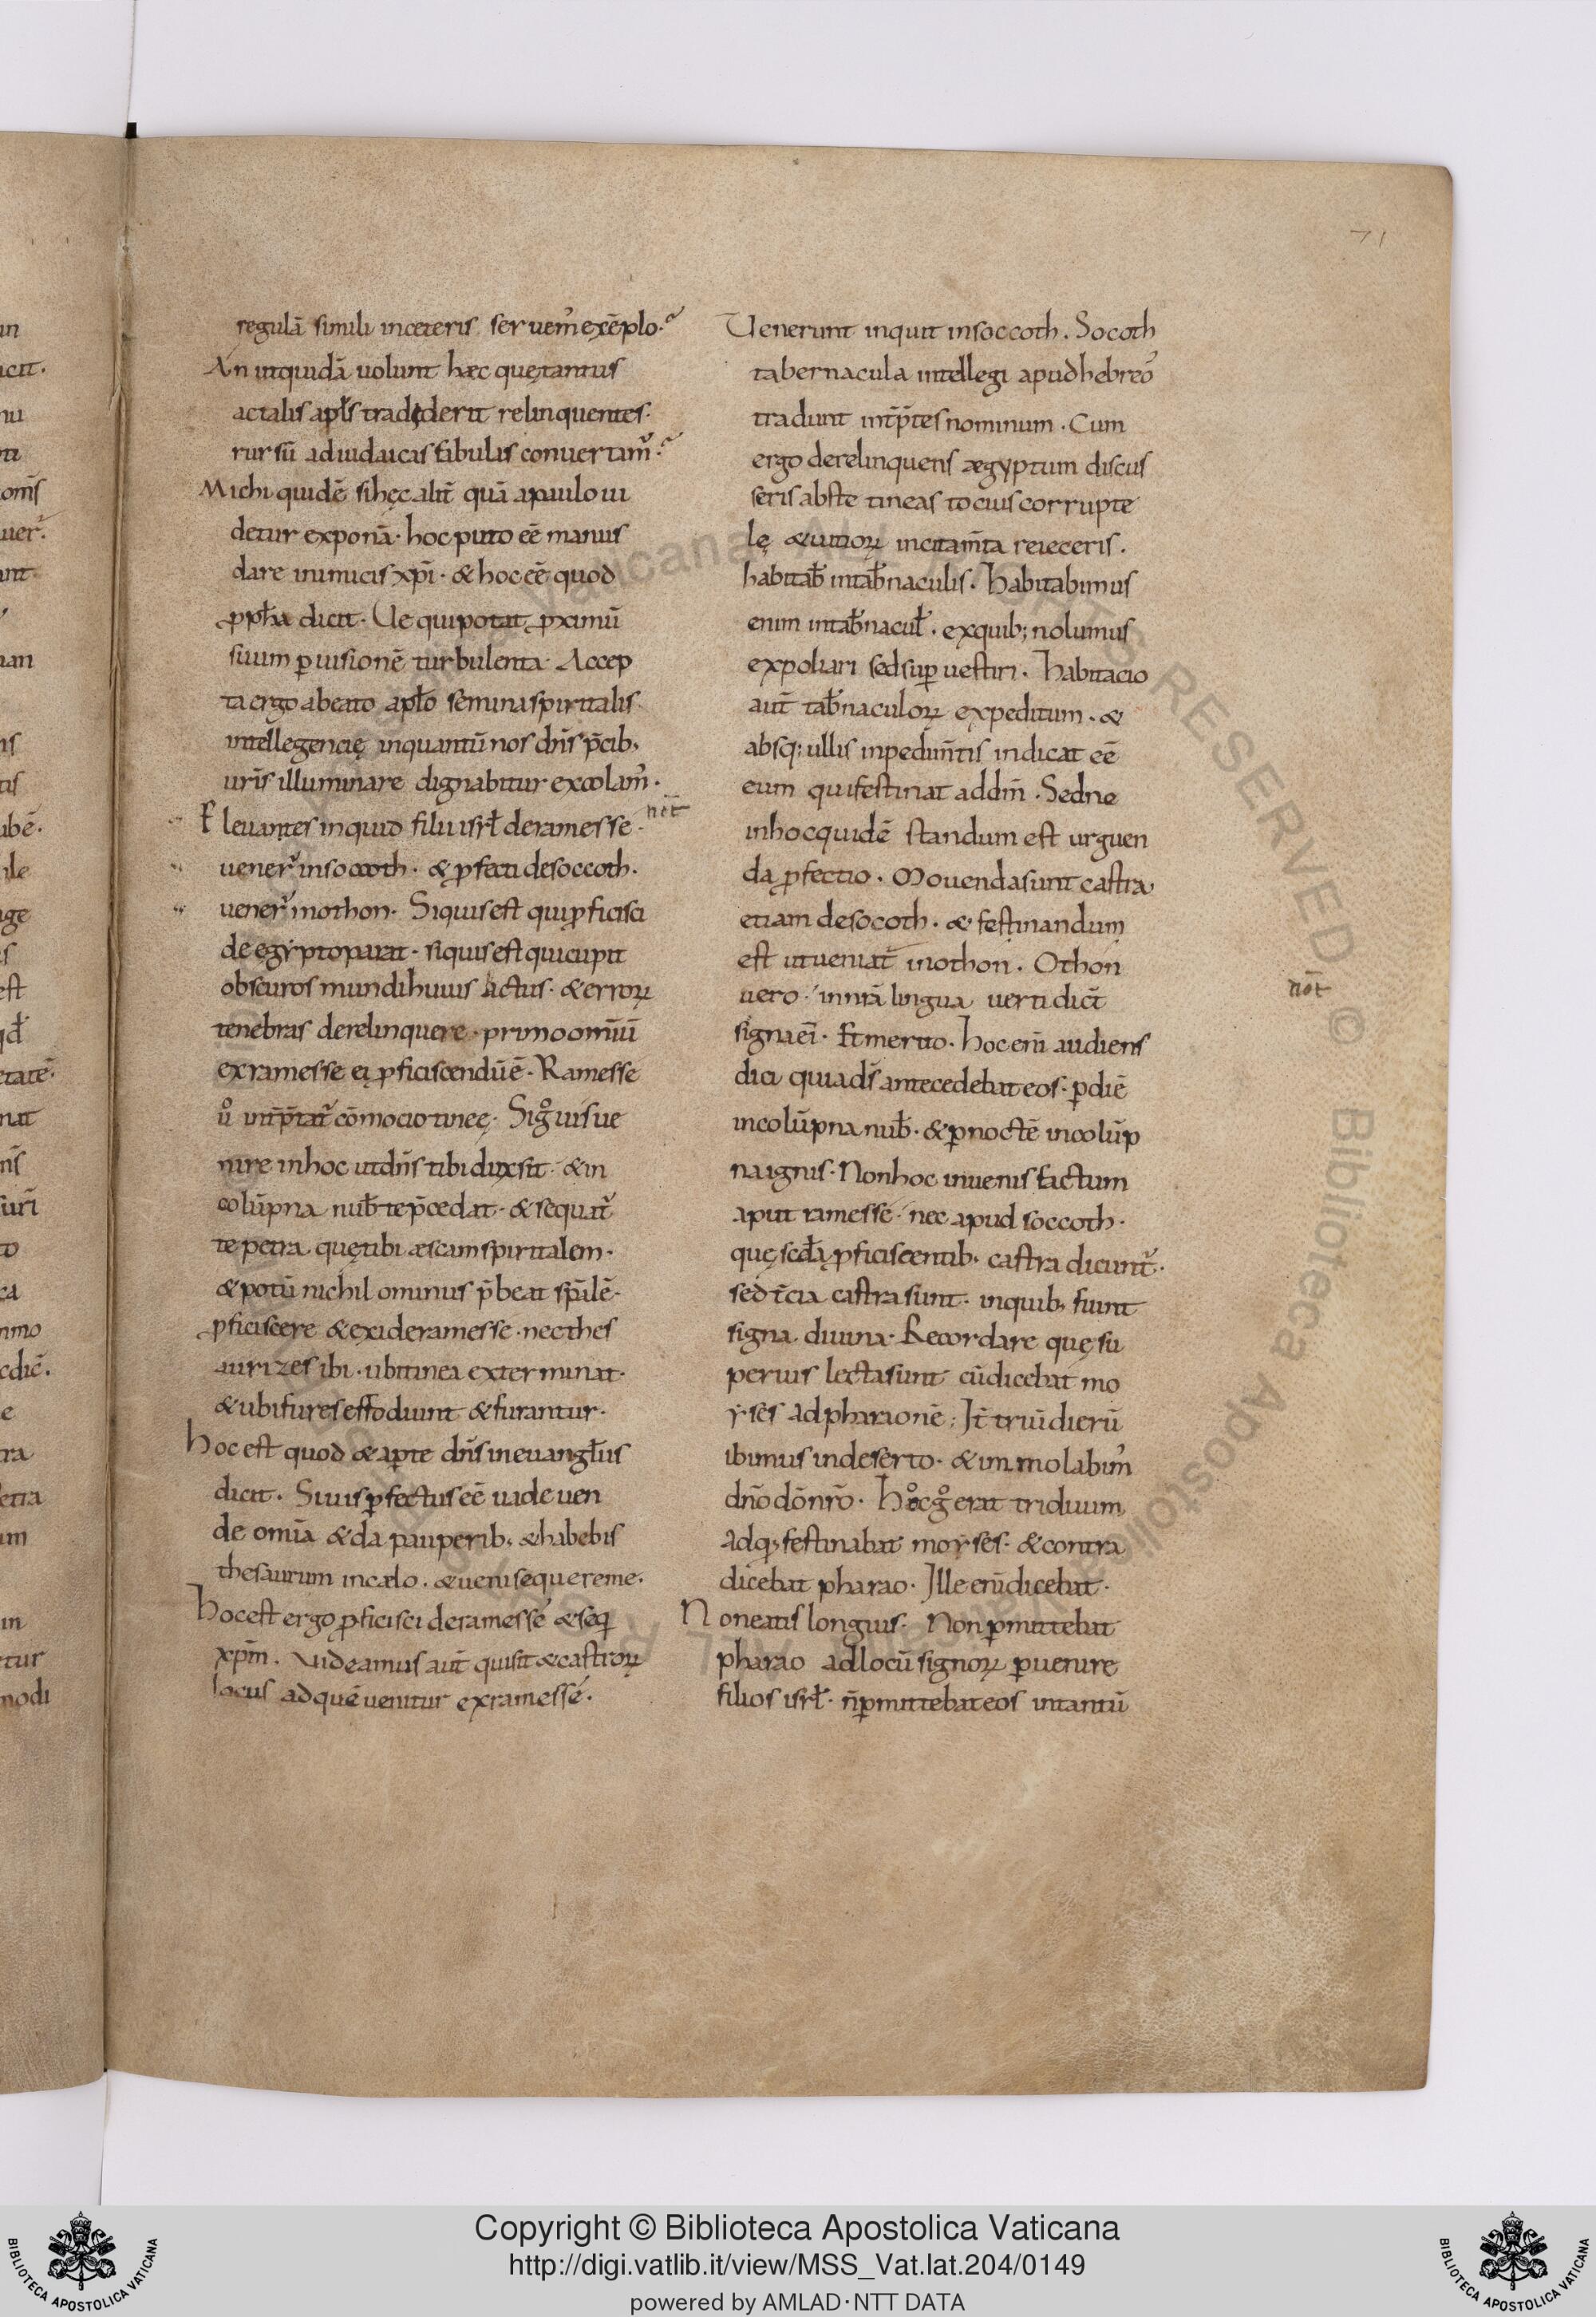 71
regulā simili inceteris seruem᷒ exēplo·
An utquidā uolunt hæc quę tantus
ac talis apłs tradiderit relinquentes·
rursū adiudaicas fabulis conuertim᷒·
Michi quidē si hęc alit̄ quā apaulo ui
detur exponā· hoc puto eē manus
dare inimicis xp̄i· & hoc eē quod
ꝓph̄a dicit· Ue qui potat ꝓximū
suum ꝑuisionē turbulenta· Accep
ta ergo abeato apło semina spiritalis
intellegencię inquantū nos dn̄s p̄cib;
ur̄is illuminare dignabitur excolam᷒·
Eleuantes inquid filii isrł deramesse·
nōt
uener̄ insoccoth· & ꝓfecti desoccoth·
uener̄ inothon· Siquis est qui ꝓficisci
de egypto parat· siquis est qui cupit
obscuros mundi huius actus· & erroꝝ
tenebras derelinquere· primo omīū
ex ramesse ei ꝓficiscendū ē· Ramesse
ů int̄p̄tat̄ cōmocio tineę· Sig̊ uis ue
nire inhoc ut dn̄s tibi dux sit· & in
colūpna nub̄ te p̄cedat· & sequat̄
te petra quę tibi æscam spiritalem·
& potū nichilominus p̄beat sp̄alē·
ꝓficiscere & exi deramesse· nec thes
aurizes ibi· ubi tinea exterminat·
& ubi fures effodiunt & furantur·
Hoc est quod & aꝑte dn̄s in euangłiis
dicit· Si uis ꝑfectus eē uade uen
de omīa & da pauperib; & habebis
thesaurum incælo· & ueni sequereme·
Hoc est ergo ꝓficisci deramesse & seq̄
xp̄m· Uideamus aut̄ quis sit & castroꝝ
locus adquē uenitur exramesse·
Uenerunt inquit insoccoth. Socoth
tabernacula intellegi apud hebreo᷒
tradunt int̄p̄tes nominum· Cum
ergo derelinquens ægyptum discus
seris abste tineas tocius corrupte
lę & uitioꝝ incitam̄ta reieceris·
habitab̄ intab̄naculis· Habitabimus
enim intab̄nacuł· exquib; nolumus
expoliari sed suꝑ uestiri· Habitacio
aut̄ tab̄naculoꝝ expeditum· &
absq; ullis inpedim̄tis indicat eē
eum qui festinat addm̄· Sed ne
inhoc quidē standum est urguen
da ꝓfectio· Mouenda sunt castra
etiam desocoth· & festinandum
est ut ueniat̄ inothon· Othon
uero innr̄ā lingua uerti dic̄t
nōt
signa eī· Et merito· Hoc enī audiens
dici quia ds̄ antecedebat eos· ꝑ diē
incolūpna nub̄· & ꝑ noctē incolūp
na ignis· Non hoc inuenis factum
aput ramesse· nec apud soccoth·
quę scđa ꝓficiscentib; castra dicunt̄·
sed t̄cia castra sunt· inquib; fiunt
signa diuina· Recordare quę su
perius lecta sunt cū dicebat mo
yses ad pharaonē; It̄ triū dierū
ibimus indeserto· & immolabim᷒
dn̄o dō nr̄o· Hoc g̊ erat triduum
adq; festinabat moyses· & contra
dicebat pharao· Ille enī dicebat·
Non eatis longius· Non ꝑmittebat
pharao adlocū signoꝝ ꝑuenire
filios isrł· n̄ ꝑmittebat eos intantū
Copyright © Biblioteca Apostolica Vaticana
http://digi.vatlib.it/view/MSS_Vat.lat.204/0149
powered by AMLAD·NTT DATA
BIBLIOTECA APOSTOLICA VATICANA
BIBLIOTECA APOSTOLICA VATICANA